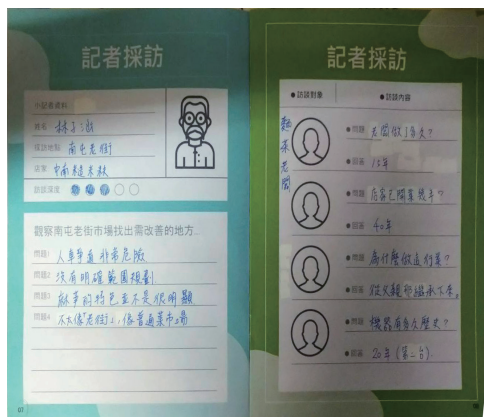 記者採訪
小記者資料
姓名 林子
採訪地點 南屯老街
店家
訪談深度
觀察南屯老街市場找出需改善的地方...
問題1 人車爭道非常危險
問題2 沒有明確範圍規劃
問題3 的特色並不是很明顯
問題4 不太像「老街」,像普通菜市場
07
記者採訪
●訪談對象 ●訪談內容
老闆
●問題 老闆做了多久?
●回答 15年
●問題 店家已開業幾年?
●回答 40年
●問題 為什麼做這行業?
●回答 從父親那繼承下來。
●問題 機器有多久歷史?
●回答 20年(第二台)。